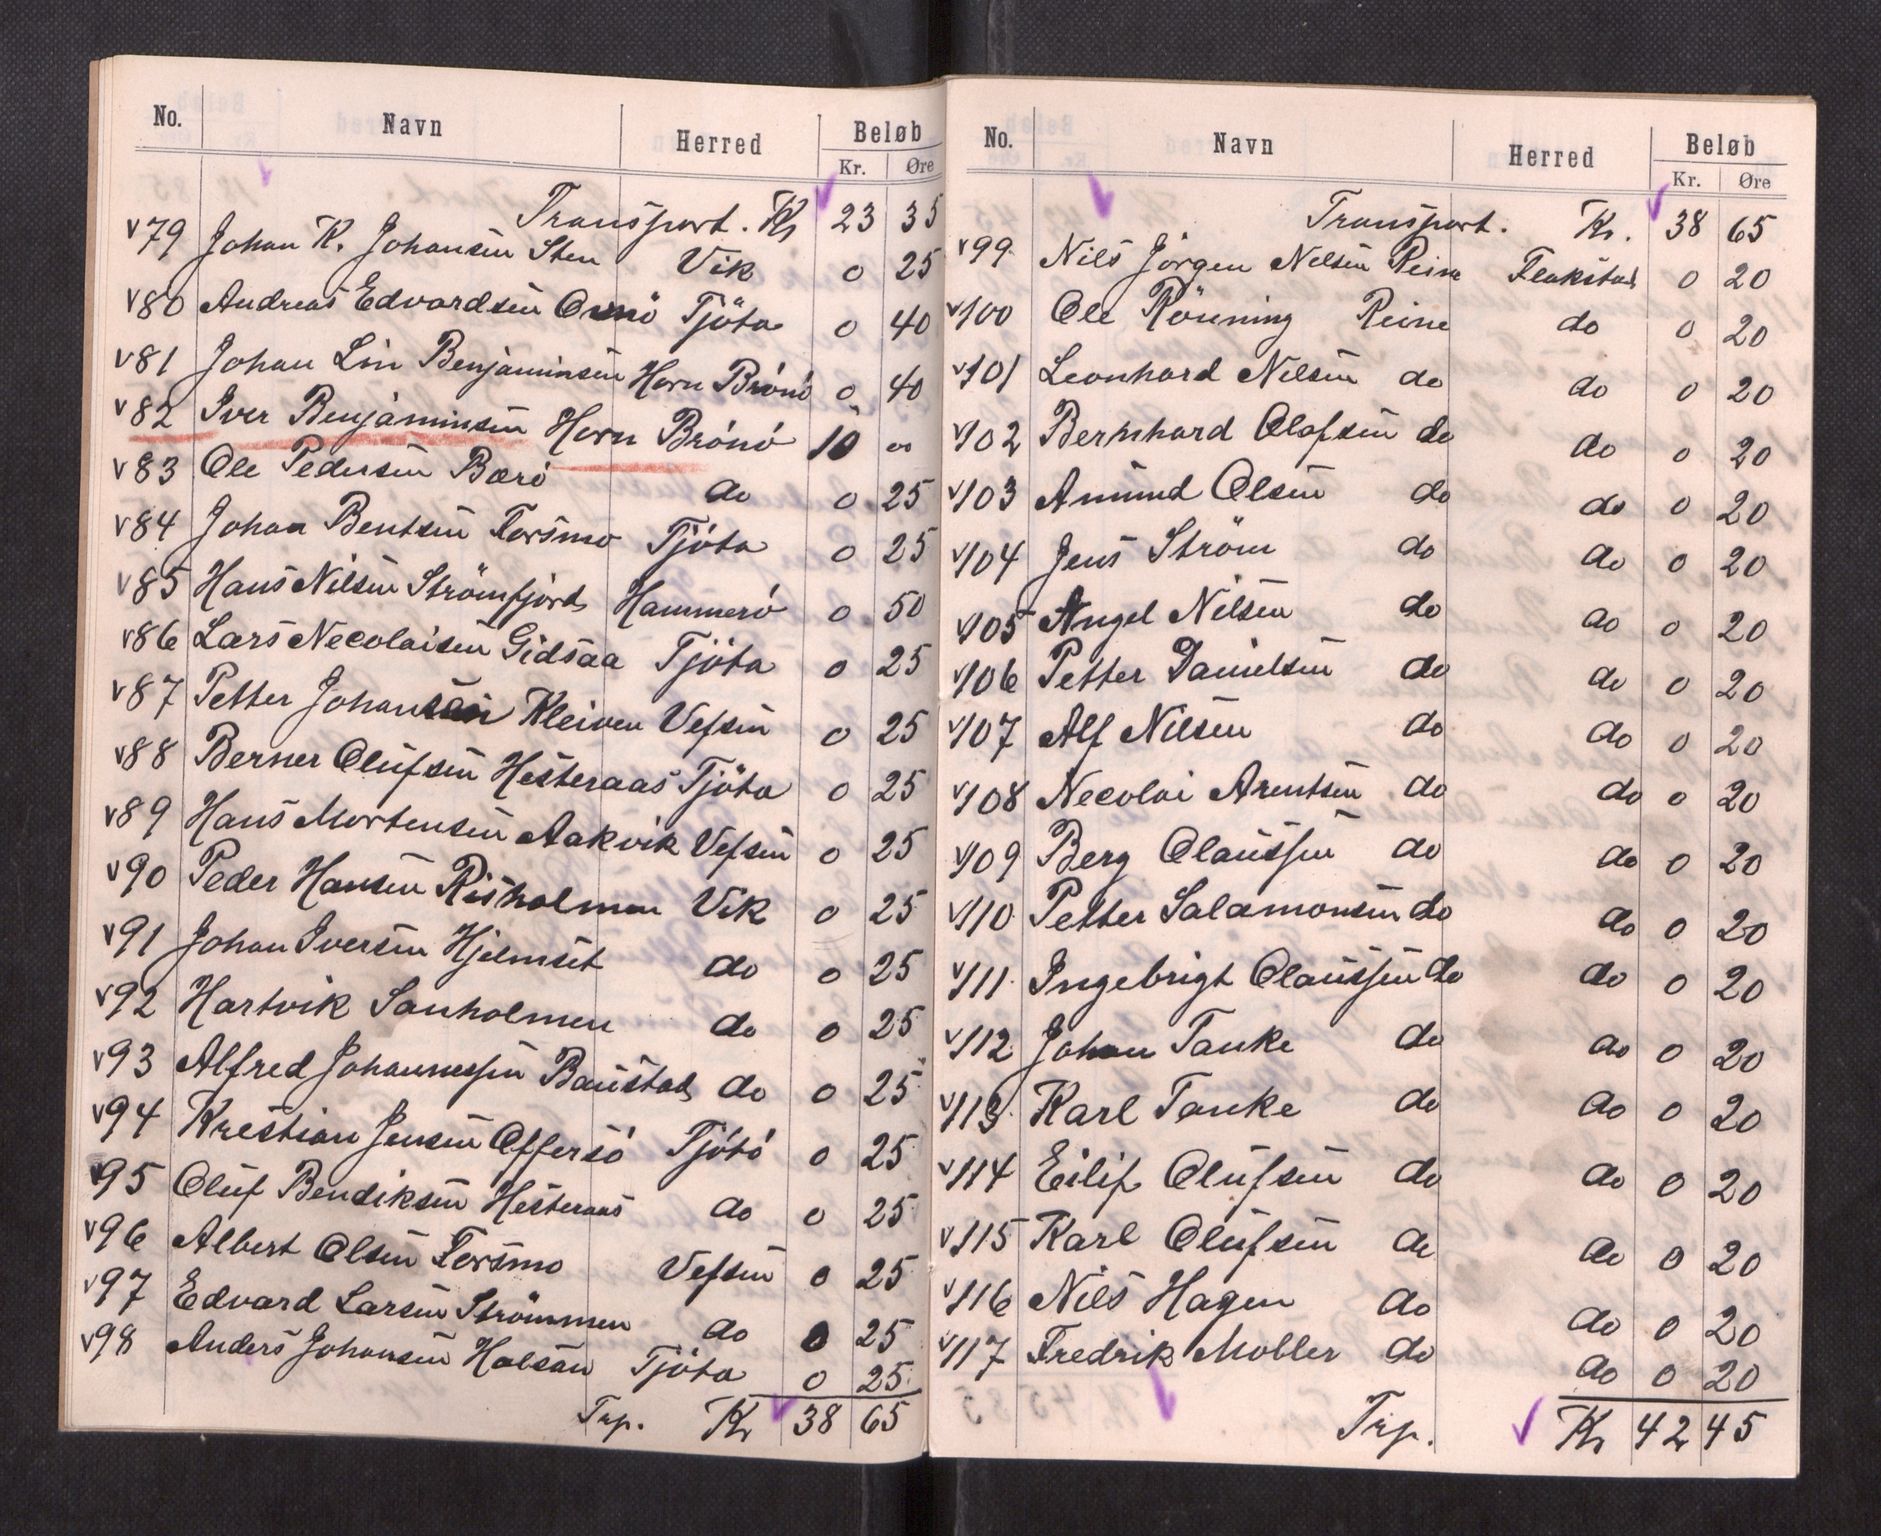 No. Navn Herred Beløb
Kr. Øre
Transport. Kr 23 35
v79 Johan K. Johansen Sten Vik 0 25
v80 Andreas Edvardsen Tjöta 0 40
v81 Johan Lin Benjaminsen Horn Brönö 0 40
v82 Iver Benjaminsen Horn Brönö 10 00
v83 Ole Pedersen Bærö do 0 25
v84 Johan Bentsen Forsmo Tjöta 0 25
v85 Hans Nilsen Strömfjord Hammerö 0 50
v86 Lars Necolaisen Gidsaa Tjöta 0 25
v87 Petter Johansen Kleiven Vefsen 0 25
v88 Berner Olufsen Hesteraas Tjöta 0 25
v89 Hans Mortensen Aakvik Vefsen 0 25
v90 Peder Hansen Risholmen Vik 0 25
v91 Johan Iversen Hjelmset do 0 25
v92 Hartvik Sanholmen do 0 25
v93 Alfred Johannessen Baustad do 0 25
v94 Krestian Jensen Offersö Tjötö 0 25
v95 Oluf Bendiksen Hesteraas do 0 25
v96 Albert Olsen Forsmo Vefsen 0 25
v97 Edvard Larsen Strömmen do 0 25
v98 Anders Johansen Halsan Tjöta 0 25
Trp. Kr 38 65
No. Navn Herred Beløb
Kr. Øre
Transport. Kr. 38 65
v99 Nils Jörgen Nelsen Reine Flakstad 0 20
v100 Ole Rönning Reine do 0 20
v101 Leonhard Nelsen do do 0 20
v102 Bernhard Olafsen do do 0 20
v103 Amund Olsen do do 0 20
v104 Jens Ström do do 0 20
v105 Angel Nilsen do do 0 20
v106 Petter Danielsen do do 0 20
v107 Alf Nilsen do do 0 20
v108 Necolai Arentsen do do 0 20
v109 Berg Claussen do do 0 20
v110 Petter Salamonsen do do 0 20
v111 Ingebrigt Claussen do do 0 20
v112 Johan Tanke do do 0 20
v113 Karl Tanke do do 0 20
v114 Eilif Olufsen do do 0 20
v115 Karl Olufsen do do 0 20
v116 Nils Hagen do do 0 20
v117 Fredrik Moller do do 0 20
Trp. Kr 42 45